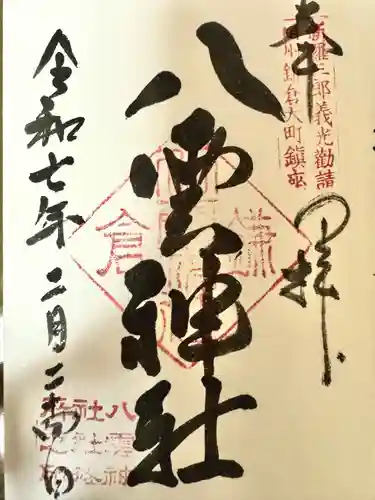 奉拝
新羅三郎義光勧請
相州鎌倉大町鎮座
八雲神社
鎌倉
令和七年二月二十四日
八雲神
社社務